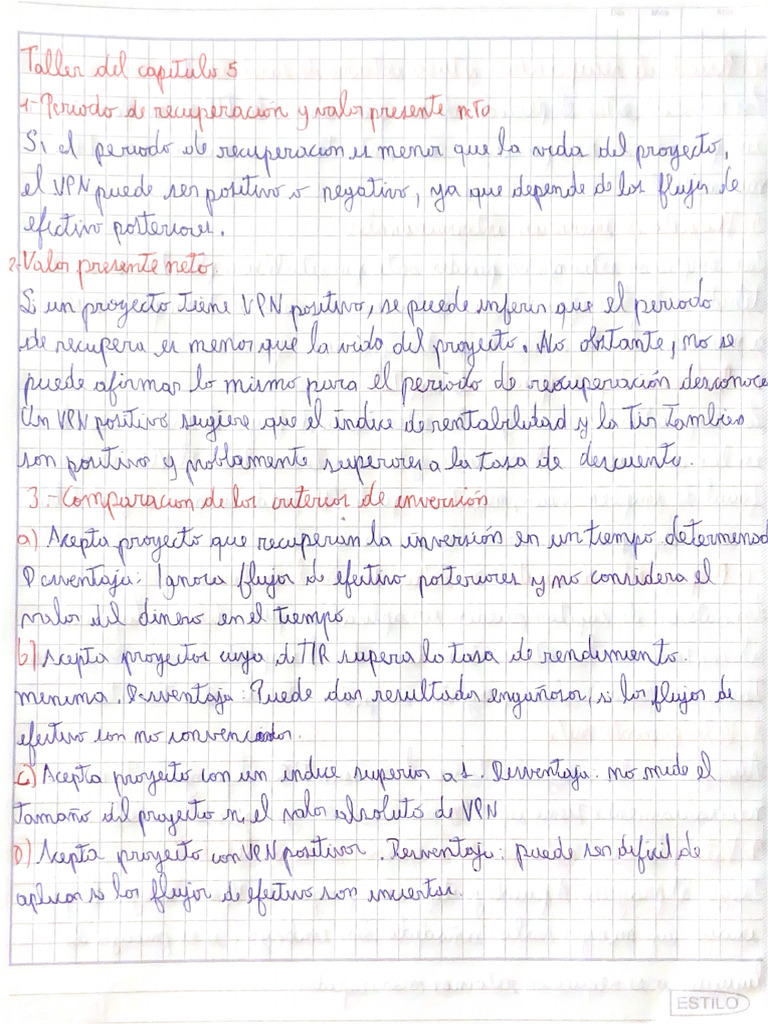 Taller del capitulo 5
1- Periodo de recuperación y valor presente neto
Si el periodo de recuperacion es menor que la vida del proyecto,
el VPN puede ser positivo o negativo, ya que depende de los flujos de
efectivo posteriores.
2- Valor presente neto.
Si un proyecto tiene VPN positivo, se puede inferir que el periodo
de recupera es menor que la vida del proyecto. No obstante, no se
puede afirmar lo mismo para el periodo de recuperación desconoce
Un VPN positivo sugiere que el índice de rentabilidad y la Tir tambien
son positivo y problamente superiores a la tasa de descuento.
3.- Comparacion de los criterios de inversión
a) Acepta proyecto que recuperan la inversión en un tiempo determenad
Desventaja: Ignora flujos de efectivo posteriores y no considera el
valor del dinero en el tiempo
b) Acepta proyectos cuya d TIR supera la tasa de rendimiento.
menima. Desventaja: Puede dar resultados engañosos, si los flujos de
efectivo son no convencionales.
c) Acepta proyecto con un indice superior a 1. Desventaja. no mide el
tamaño del proyecto ni el valor absoluto de VPN
D) Acepta proyecto con VPN positivos. Desventaja: puede ser dificil de
aplicar si los flujos de efectivo son inciertos.
ESTILO